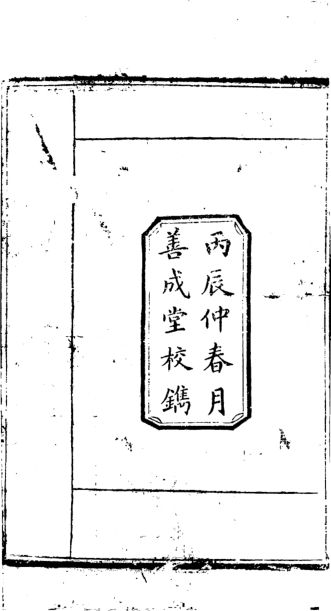 丙辰仲春月
善成堂校鐫